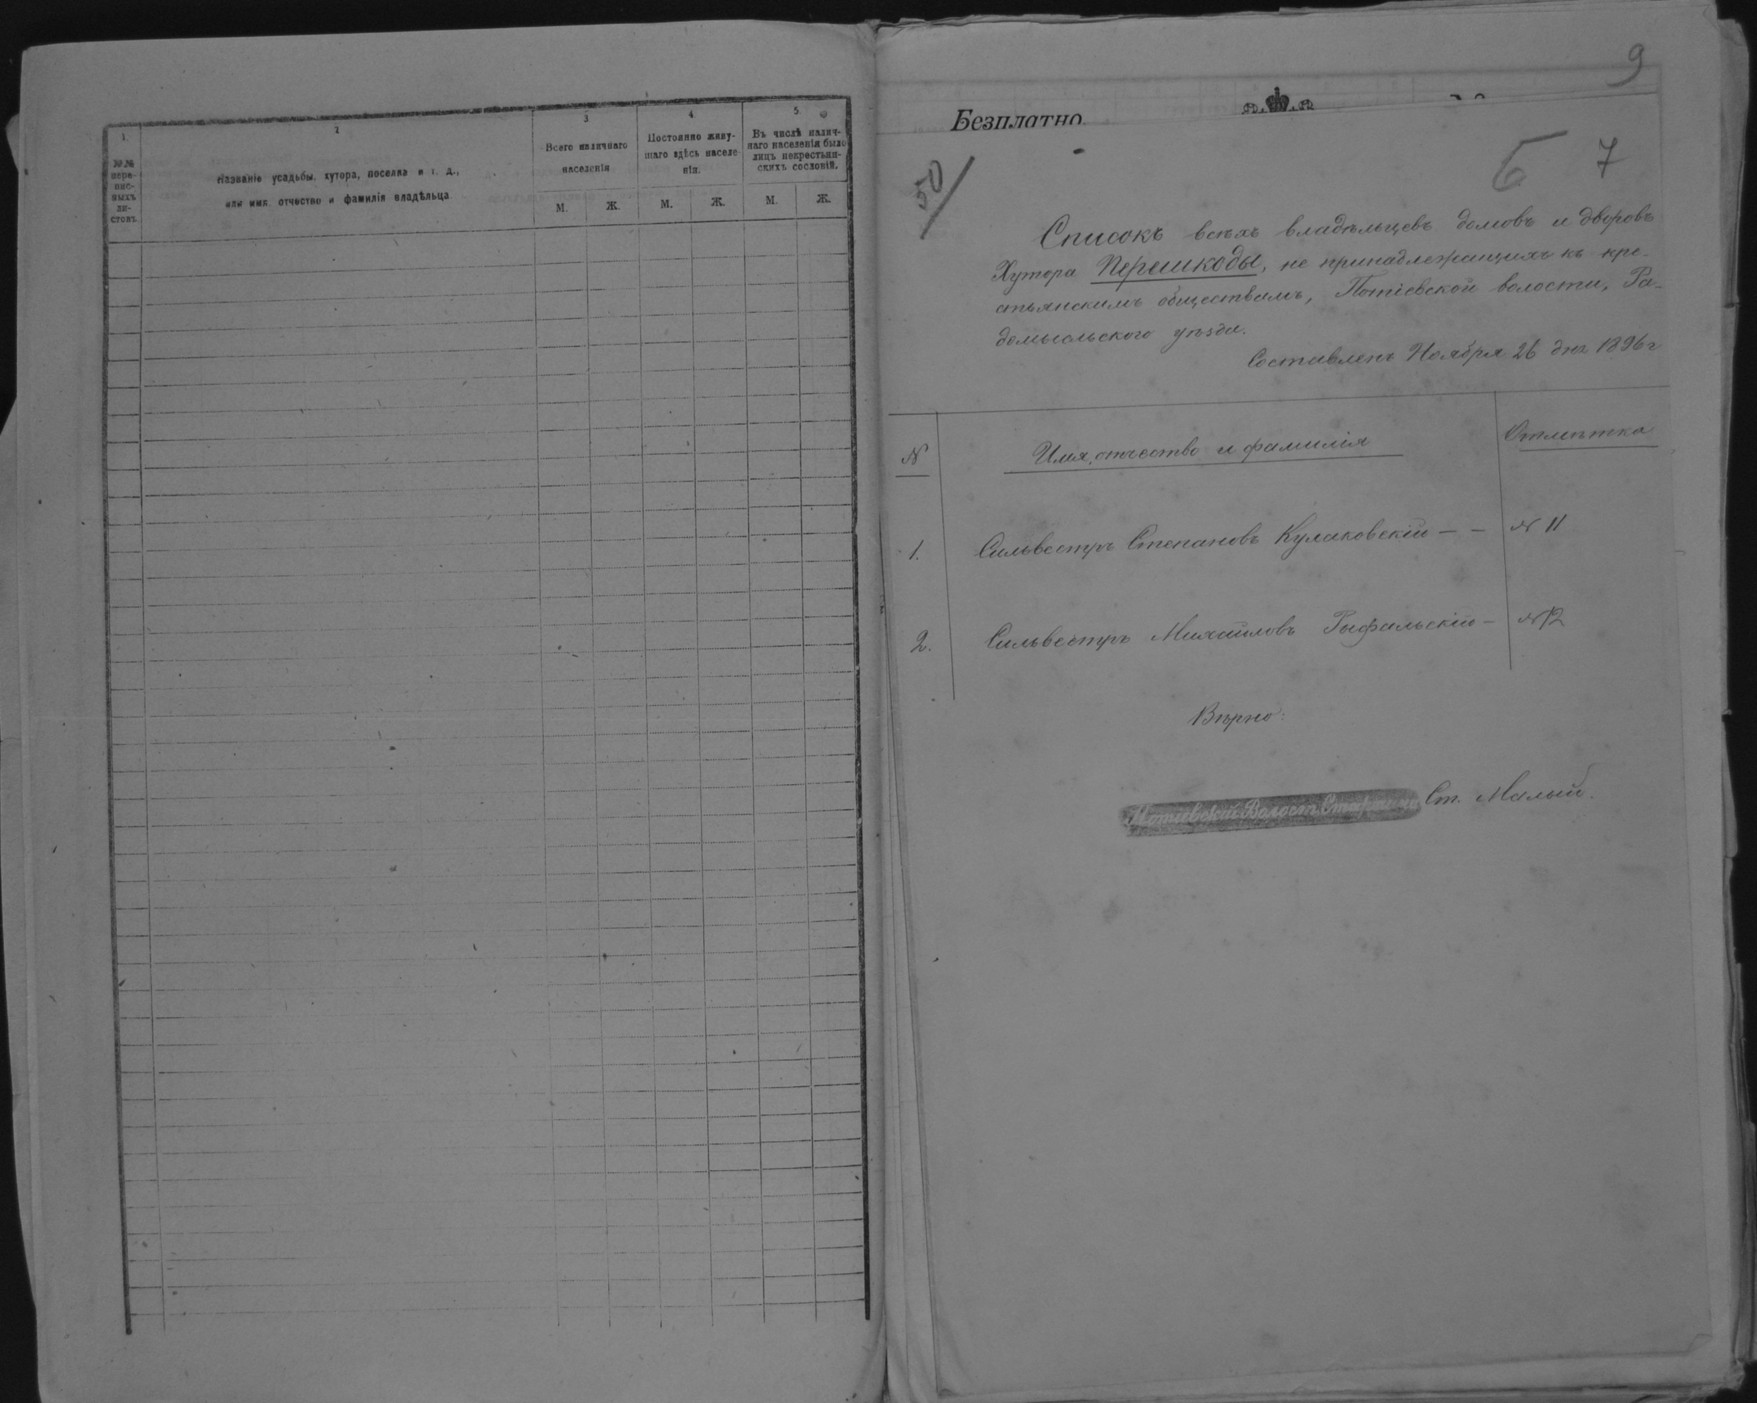 1.
2
3
4
5.
№№ пере-
пис-
ныхъ
ли-
стовъ.
Названіе усадьбы, хутора, поселка и т. д.,
или имя, отчество и фамилія владѣльца
Всего наличнаго
населенія
Постоянно живу-
щаго здѣсь населе-
нія.
Въ числѣ налич-
наго населенія было
лицъ некрестьян-
скихъ сословій.
М.
Ж.
М.
Ж.
М.
Ж.
9
Безплатно
50
6 7
Списокъ всѣхъ владѣльцевъ домовъ и дворовъ
Хутора Перешкоды, не принадлежащихъ къ кре-
стьянскимъ обществамъ, Потіевской волости, Ра-
домысльского уѣзда.
Составленъ Ноября 26 дня 1896 г
№ Имя, отчество и фамилія Отмѣтка
1. Сильвестръ Степановъ Кулаковскій - - № 11
2. Сильвестръ Михайловъ Гыфальскій - № 12
Вѣрно:
Потіевскій Волост. Старшина Ст. Малый.